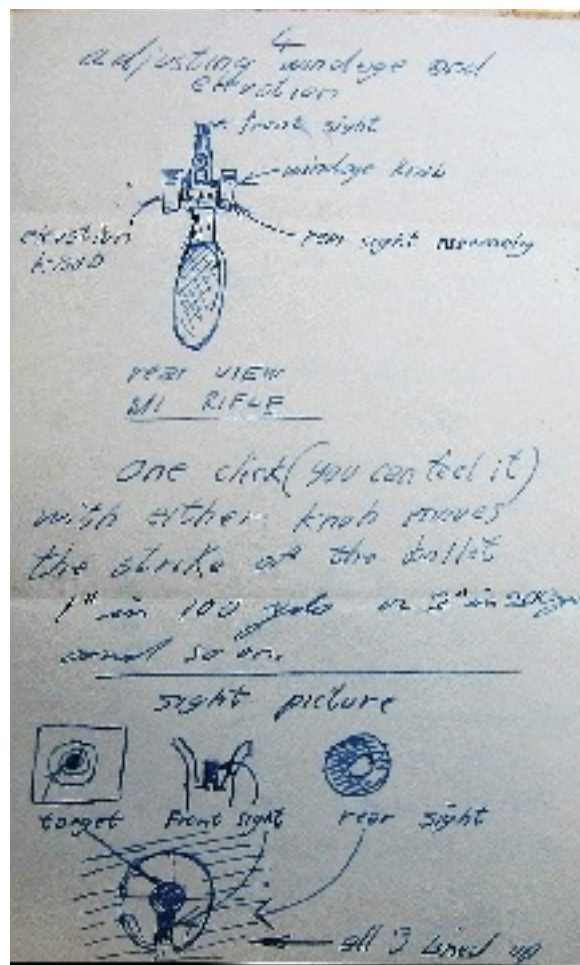 4
adjusting windage and
elevation
front sight
windage knob
elevation
knob
rear sight assembly
rear VIEW
M1 RIFLE
One click (you can feel it)
with either knob moves
the strike of the bullet
1" in 100 yds or 2" in 200
and so on.
sight picture
target front sight rear sight
all 3 lined up